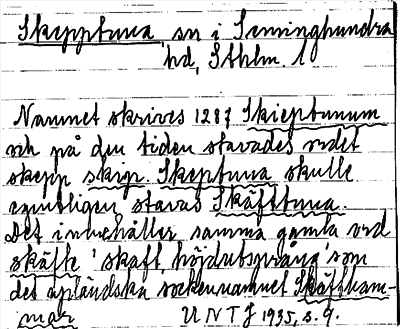 Skepptuna, sn i Seminghundra
hd, Sthlm. l
Namnet skrives 1287 Skieptunum
och på den tiden stavades ordet
skepp skip. Skeptuna skulle
egentligen stavas Skäfttuna.
Det innehåller samma gamla ord
skäfte 'skaft, höjdutsprång' som
det upländska sockennamnet Skäftham-
mar UNT J 1935, s. 9.